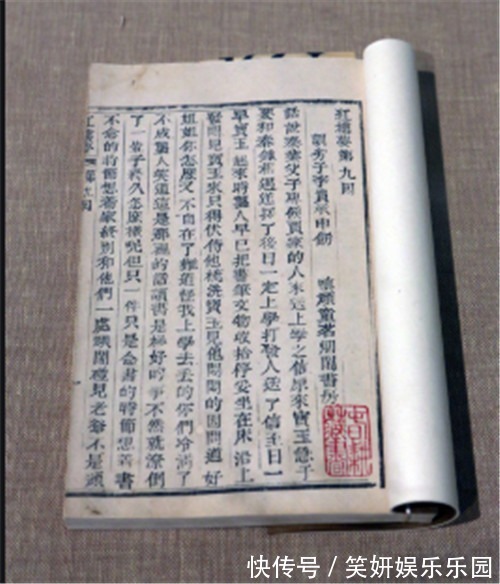 紅樓夢第九回
訓劣子李貴承申飭 嗔頑童茗烟鬧書房
話說秦業父子專候賈家的人來送上學之信原來寶玉急于
要和秦鍾相遇遂擇了後日一定上學打發人送了信至日一
早寶玉起來時襲人早已把書筆文物收拾停妥坐在床沿上
發悶見寶玉來只得伏侍他梳洗寶玉見他悶悶的因問道好
姐姐你怎麼又不自在了難道怪我上學去丟的你們冷淸了
不成襲人笑道這是那裡的話讀書是極好的事不然就潦倒
了一輩子終久怎麼樣呢但只一件只是念書的時節想着書
不念的時節想着家終別和他們一處頑鬧碰見老爺不是頑
快传号 / 笑妍娱乐乐园